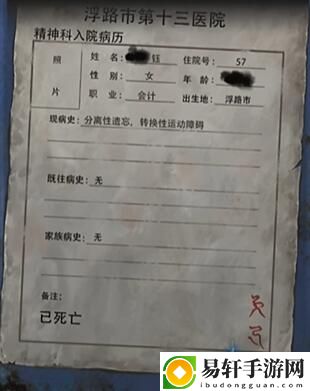 浮路市第十三医院
精神科入院病历
照片
姓名: 钰 住院号: 57
性别: 女 年龄:
职业: 会计 出生地: 浮路市
现病史: 分离性遗忘，转换性运动障碍
既往病史: 无
家族病史: 无
备注:
已死亡
易轩手游网
ibudongguan.com